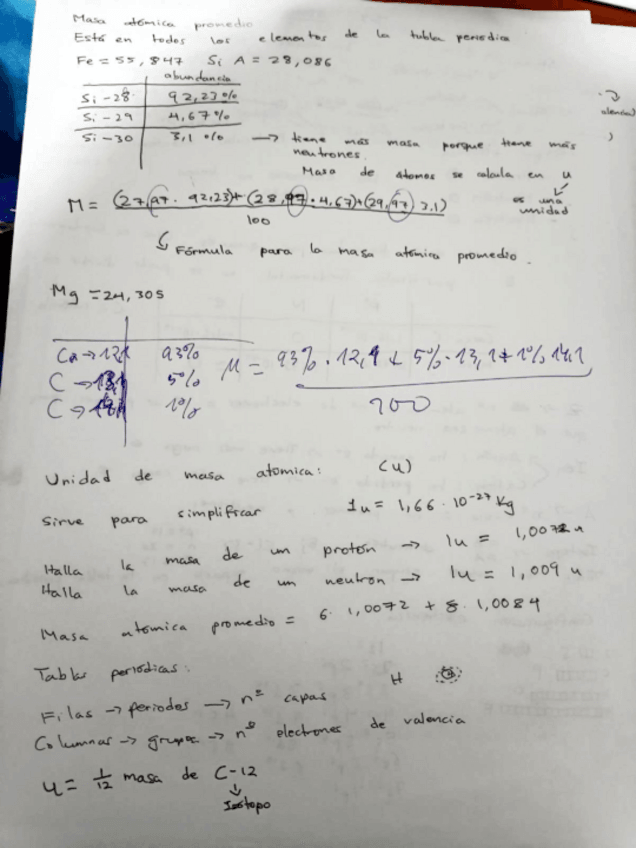 Masa atómica promedio
Está en todos los elementos de la tabla periodica
Fe = 55,847 Si A = 28,086
abundancia
Si-28 92,23%
Si-29 4,67%
Si-30 3,1% → tiene más masa porque tiene más
neutrones.
Masa de átomos se calcula en u
es una
unidad
M = (27,97 · 92,23)+(28,97 · 4,67)+(29,97 · 3,1)
100
Fórmula para la masa atómica promedio.
Mg = 24,305
93%
C → 5%
C → 1%
M = 93% · 12,1 + 5% · 13,1 + 1% 14,1
100
Unidad de masa atomica: (u)
Sirve para simplificar 1u = 1,66 · 10⁻²⁷ kg
Halla la masa de un protón → 1u = 1,0072 u
Halla la masa de un neutron → 1u = 1,009 u
Masa atomica promedio = 6 · 1,0072 + 8 · 1,0084
Tablas periódicas: H
Filas → periodos → nº capas
Columnas → grupos → nº electrones de valencia
u = 1/12 masa de C-12
↓
Isotopo